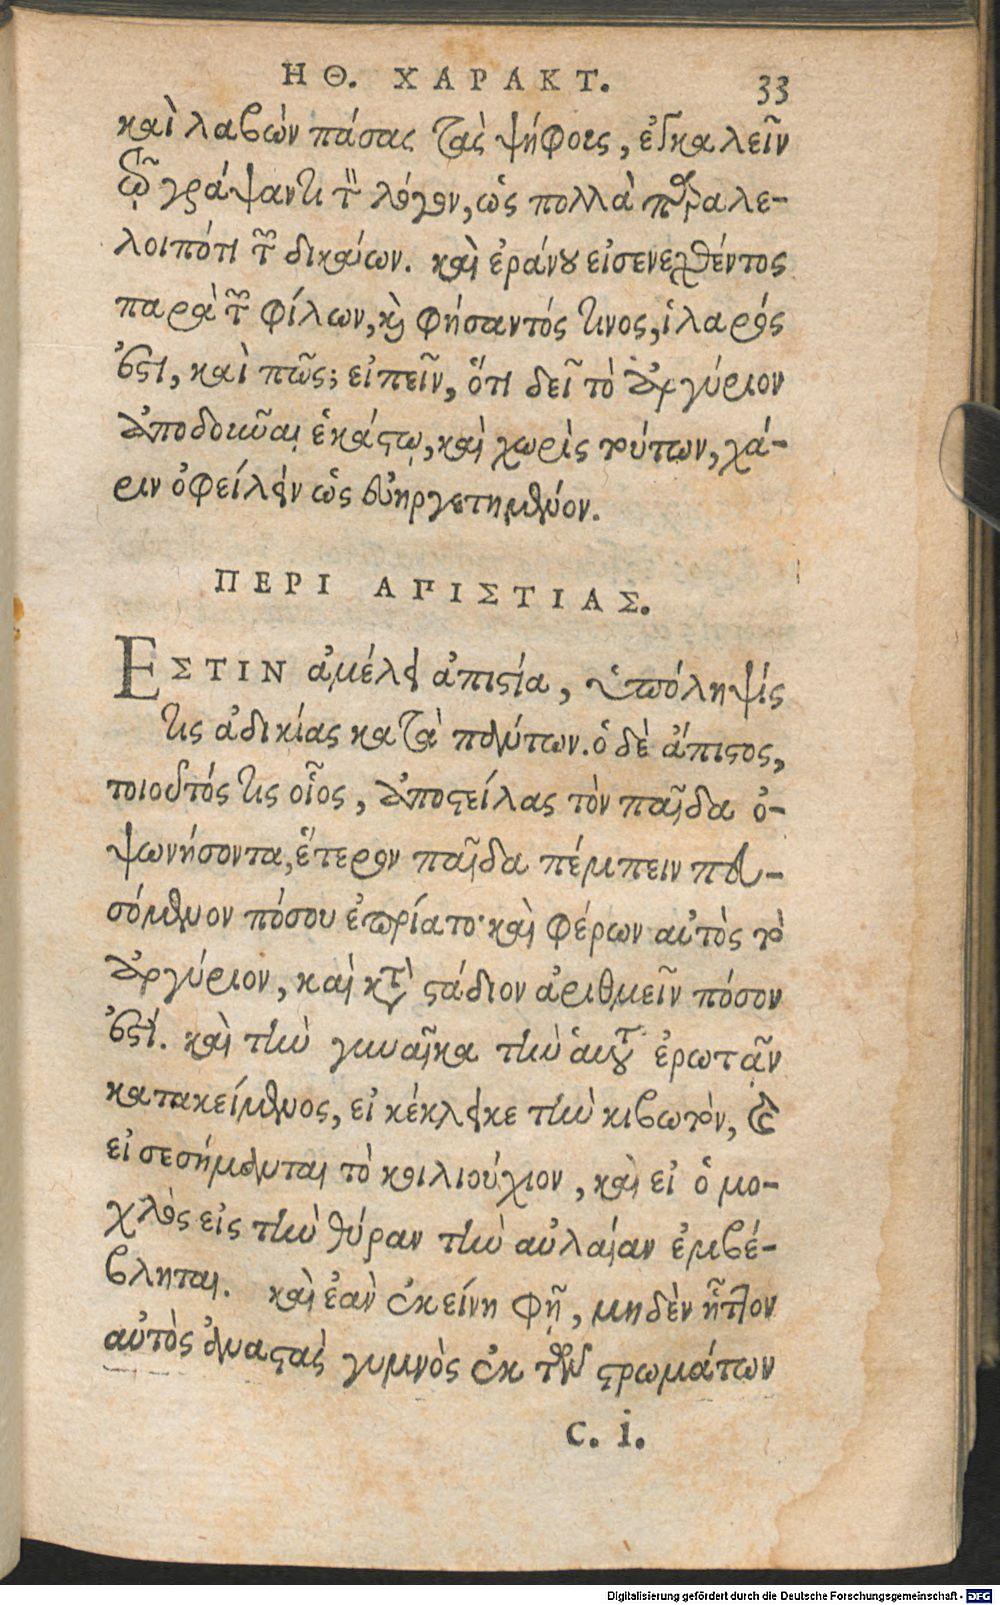 ΗΘ. ΧΑΡΑΚΤ. 33
καὶ λαβὼν πάσας τὰς ψήφους, ἐγκαλεῖν
τῷ γράψαντι τὸν λόγον, ὡς πολλὰ παραλε-
λοιπότι τῶν δικαίων. καὶ ἐράνου εἰσενεχθέντος
παρὰ τῶν φίλων, καὶ φήσαντός τινος, ἱλαρός
ἔστι, καὶ πῶς; εἰπεῖν, ὅτι δεῖ τὸ ἀργύριον
ἀποδοῦναι ἑκάστῳ, καὶ χωρὶς τούτων, χά-
ριν ὀφείλειν ὡς εὐηργετημένον.
ΠΕΡΙ ΑΠΙΣΤΙΑΣ.
ΕΣΤΙΝ ἀμέλει ἀπιστία, ὑπόληψίς
τις ἀδικίας κατὰ πάντων. ὁ δὲ ἄπιστος,
τοιοῦτός τις οἷος, ἀποστείλας τὸν παῖδα ὀ-
ψωνήσοντα, ἕτερον παῖδα πέμπειν πευ-
σόμενον πόσου ἐπρίατο· καὶ φέρων αὐτὸς τὸ
ἀργύριον, καὶ κατὰ στάδιον ἀριθμεῖν πόσον
ἐστί. καὶ τὴν γυναῖκα τὴν αὑτοῦ ἐρωτᾶν
κατακείμενος, εἰ κέκλεικε τὴν κιβωτὸν, καὶ
εἰ σεσήμανται τὸ κοιλιούχιον, καὶ εἰ ὁ μο-
χλὸς εἰς τὴν θύραν τὴν αὐλαίαν ἐμβέ-
βληται. καὶ ἐὰν ἐκείνη φῇ, μηδὲν ἧττον
αὐτὸς ἀναστὰς γυμνὸς ἐκ τῶν στρωμάτων
C. i.
Digitalisierung gefördert durch die Deutsche Forschungsgemeinschaft - DFG